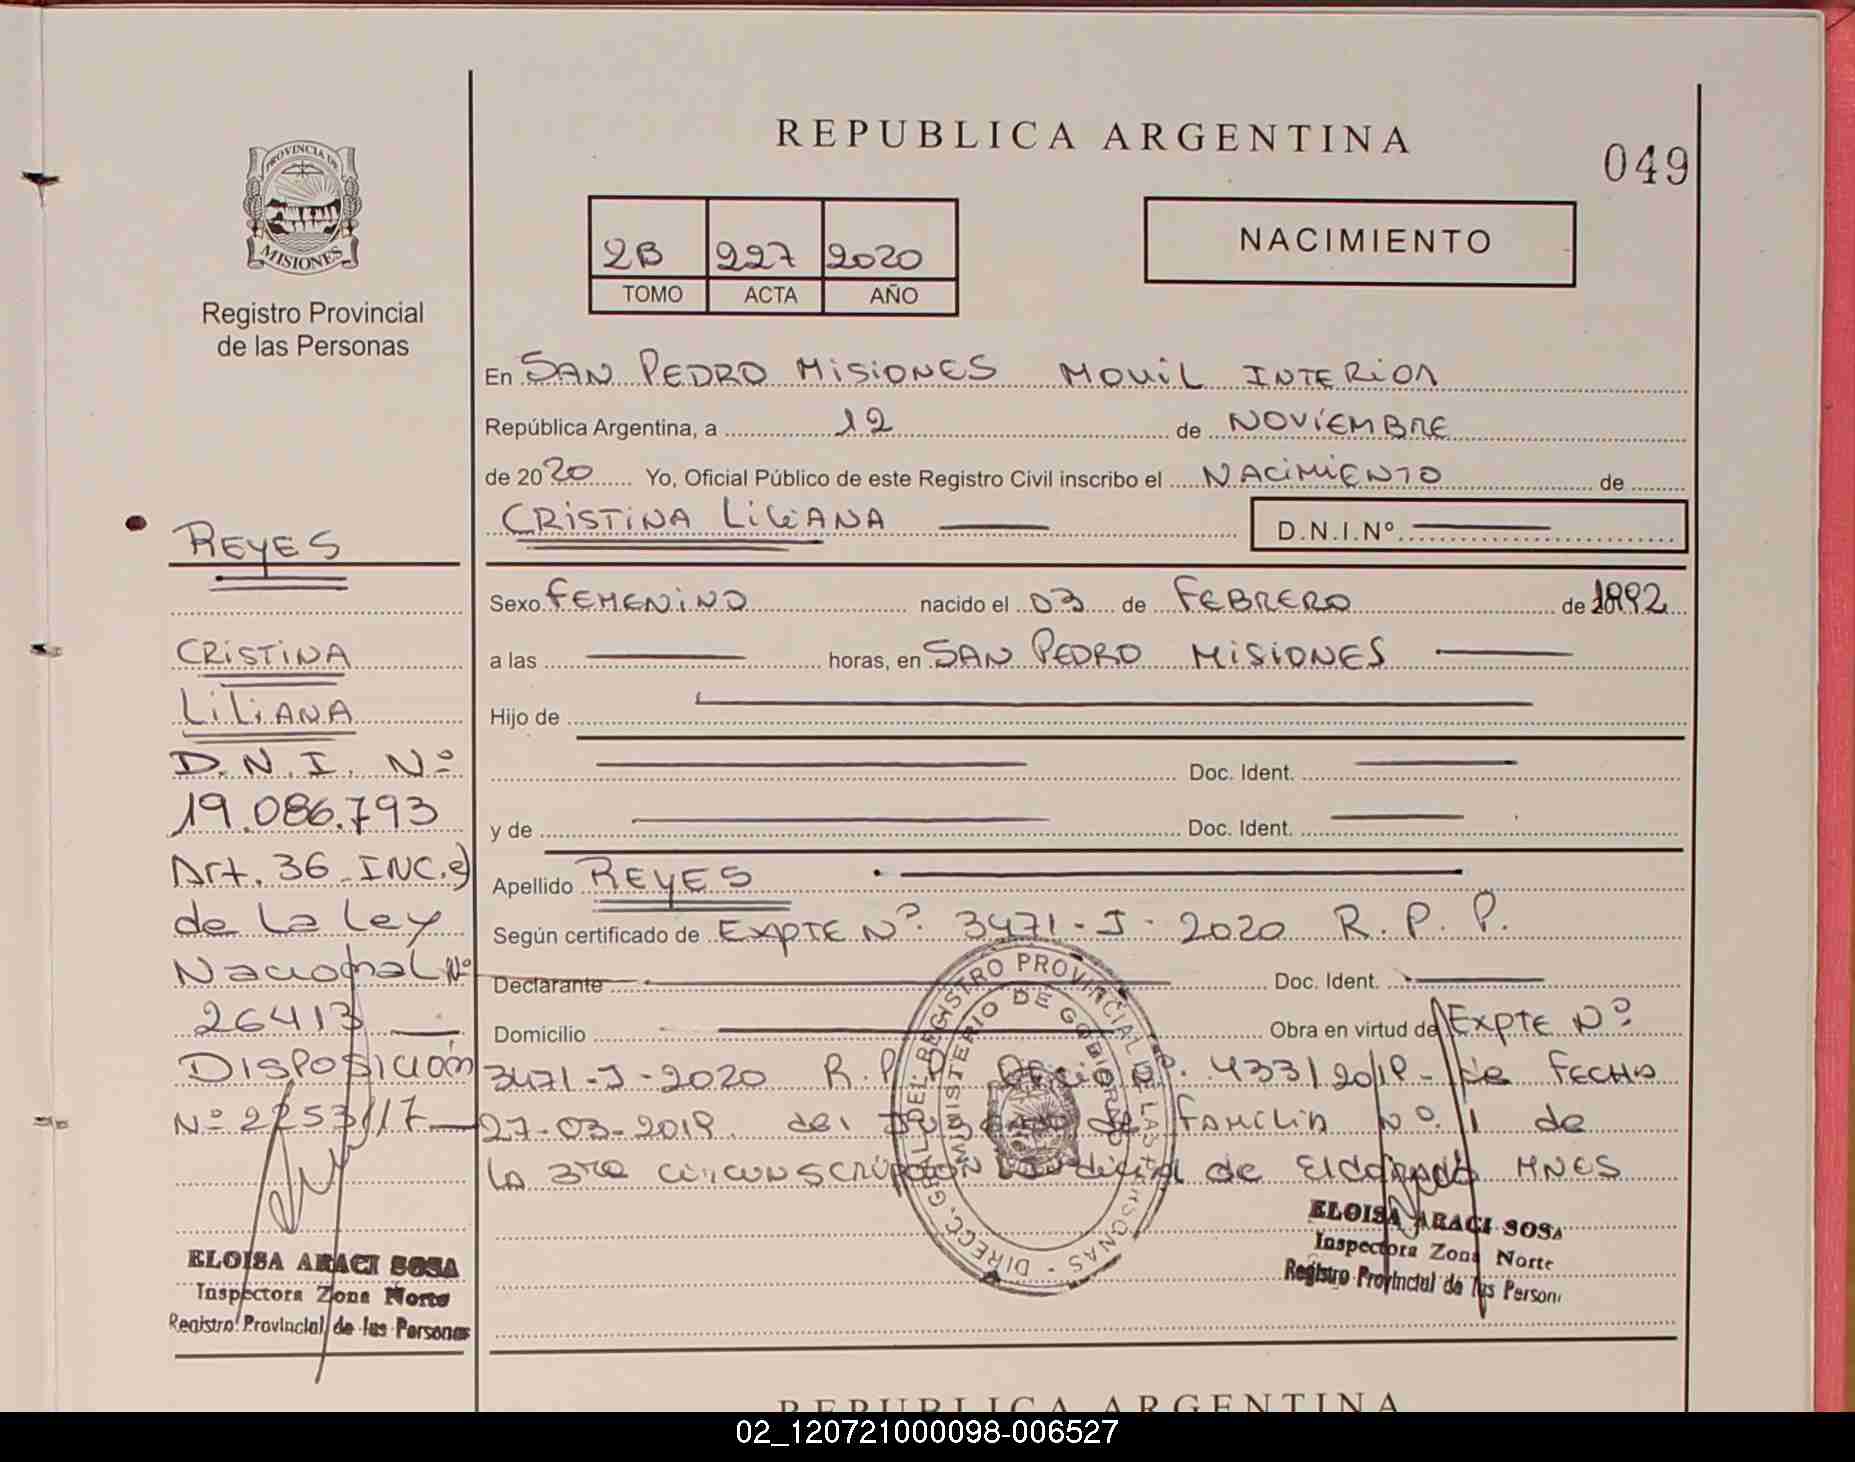 REPUBLICA ARGENTINA
049
PROVINCIA DE
MISIONES
Registro Provincial
de las Personas
2B 227 2020
TOMO ACTA AÑO
NACIMIENTO
En SAN PEDRO MISIONES MOVIL INTERIOR
República Argentina, a 12 de NOVIEMBRE
de 2020 Yo, Oficial Público de este Registro Civil inscribo el NACIMIENTO de
CRISTINA LILIANA D.N.I.Nº
Sexo FEMENINO nacido el 03 de FEBRERO de 1992
a las horas, en SAN PEDRO MISIONES
Hijo de
Doc. Ident.
y de Doc. Ident.
Apellido REYES
Según certificado de EXPTE Nº 3471-J-2020 R.P.P.
Declarante Doc. Ident.
Domicilio Obra en virtud de EXPTE Nº
3471-J-2020 R.P.P. Oficio Nº. 433/2019- de FECHA
27-03-2019 del Juzgado de FAMILIA Nº. 1 de
LA 3ra CircunscripCiÓN Judicial de Eldorado MNES
REYES
CRISTINA
LILIANA
D.N.I. Nº
19.086.793
Art. 36 INC.e)
de La Ley
Nacional Nº
26413
DISPOSICIÓN
Nº 2253/17
ELOISA ARACI SOSA
Inspectora Zona Norte
Registro Provincial de las Personas
DIRECC. GRAL. DEL REGISTRO PROVINCIAL DE LAS PERSONAS
MINISTERIO DE GOBIERNO
ELOISA ARACI SOSA
Inspectora Zona Norte
Registro Provincial de las Person
REPUBLICA ARGENTINA
02_120721000098-006527